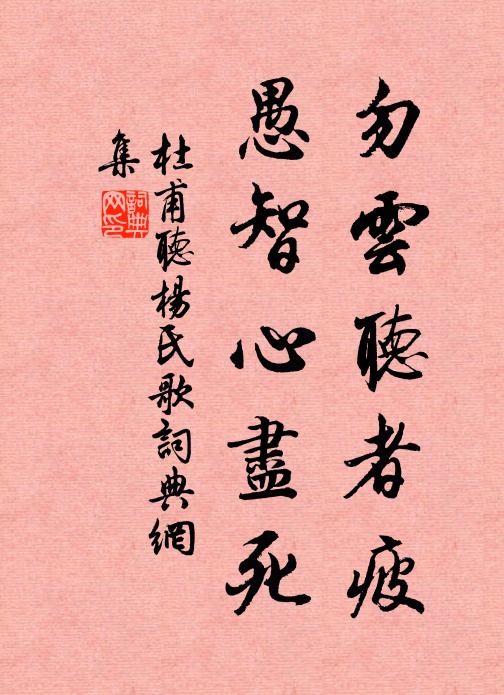 勿雲聽者疲
愚智心盡死
杜甫聽楊氏歌詞典網
集
詞典網印